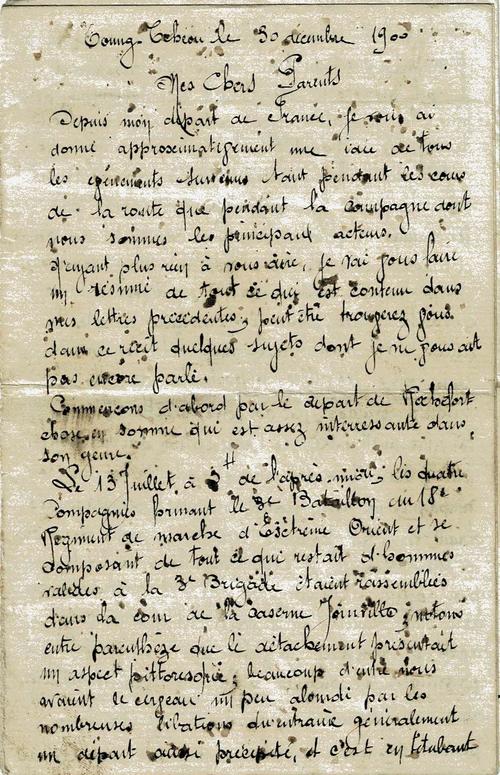 Toung-Tcheou le 30 décembre 1900
Mes Chers Parents
Depuis mon départ de France, je vous ai
donné approximativement une idée de tous
les évènements survenus tant pendant le cours
de la route que pendant la campagne dont
nous sommes les principaux acteurs.
N'ayant plus rien à vous dire, je vai vous faire
un résumé de tout ce qui est contenu dans
mes lettres précédentes, peut être trouverez vous
dans ce récit quelques sujets dont je ne vous ait
pas encore parlé.
Commençons d'abord par le départ de Rochefort
chose en somme qui est assez interressante dans
son genre.
Le 13 Juillet à 3H de l'après-midi, les quatre
Compagnies formant le 3e Bataillon du 18e
Régiment de marche d'Extrême Orient et se
composant de tout ce qui restait d'hommes
valides à la 3e Brigade étaient rassemblées
dans la cour de la caserne Joinville, notons
entre parenthèze que le détachement présentait
un aspect pittoresque, beaucoup d'entre nous
avaient le cerveau un peu alourdi par les
nombreuses libations qu'entraine généralement
un départ aussi précipité, et c'est en titubant